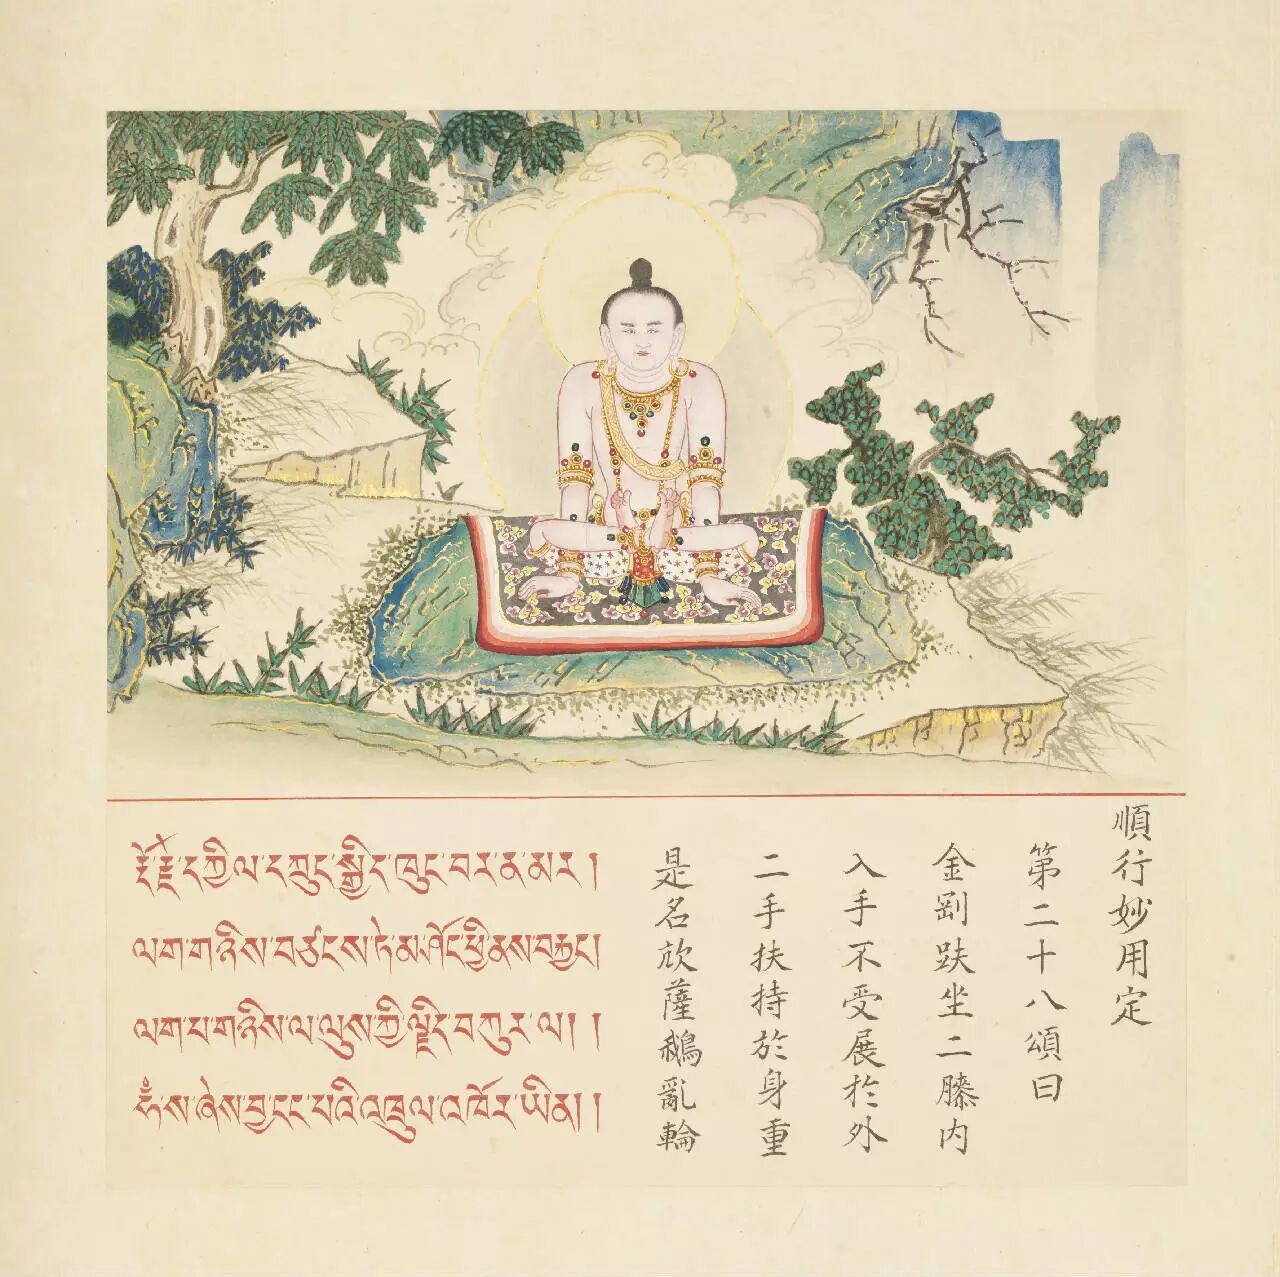 順行妙用定
第二十八頌曰
金剛趺坐二膝内
入手不受展於外
二手扶持於身重
是名薩鵝亂輪
རྡོ་རྗེ་དཀྱིལ་དཀྲུང་སྒྱིད་ཁུང་བར་ན་མར།
ལག་གཉིས་བཙངས་ཏེ་མ་ཤོང་ཕྱི་ནས་བརྐྱང།
ལག་པ་གཉིས་ལ་ལུས་ཀྱི་ལྗིད་བཀུར་ལ། །
ཧཾ་ས་ཞེས་བྱ་ངང་པའི་འཁྲུལ་འཁོར་ཡིན། །